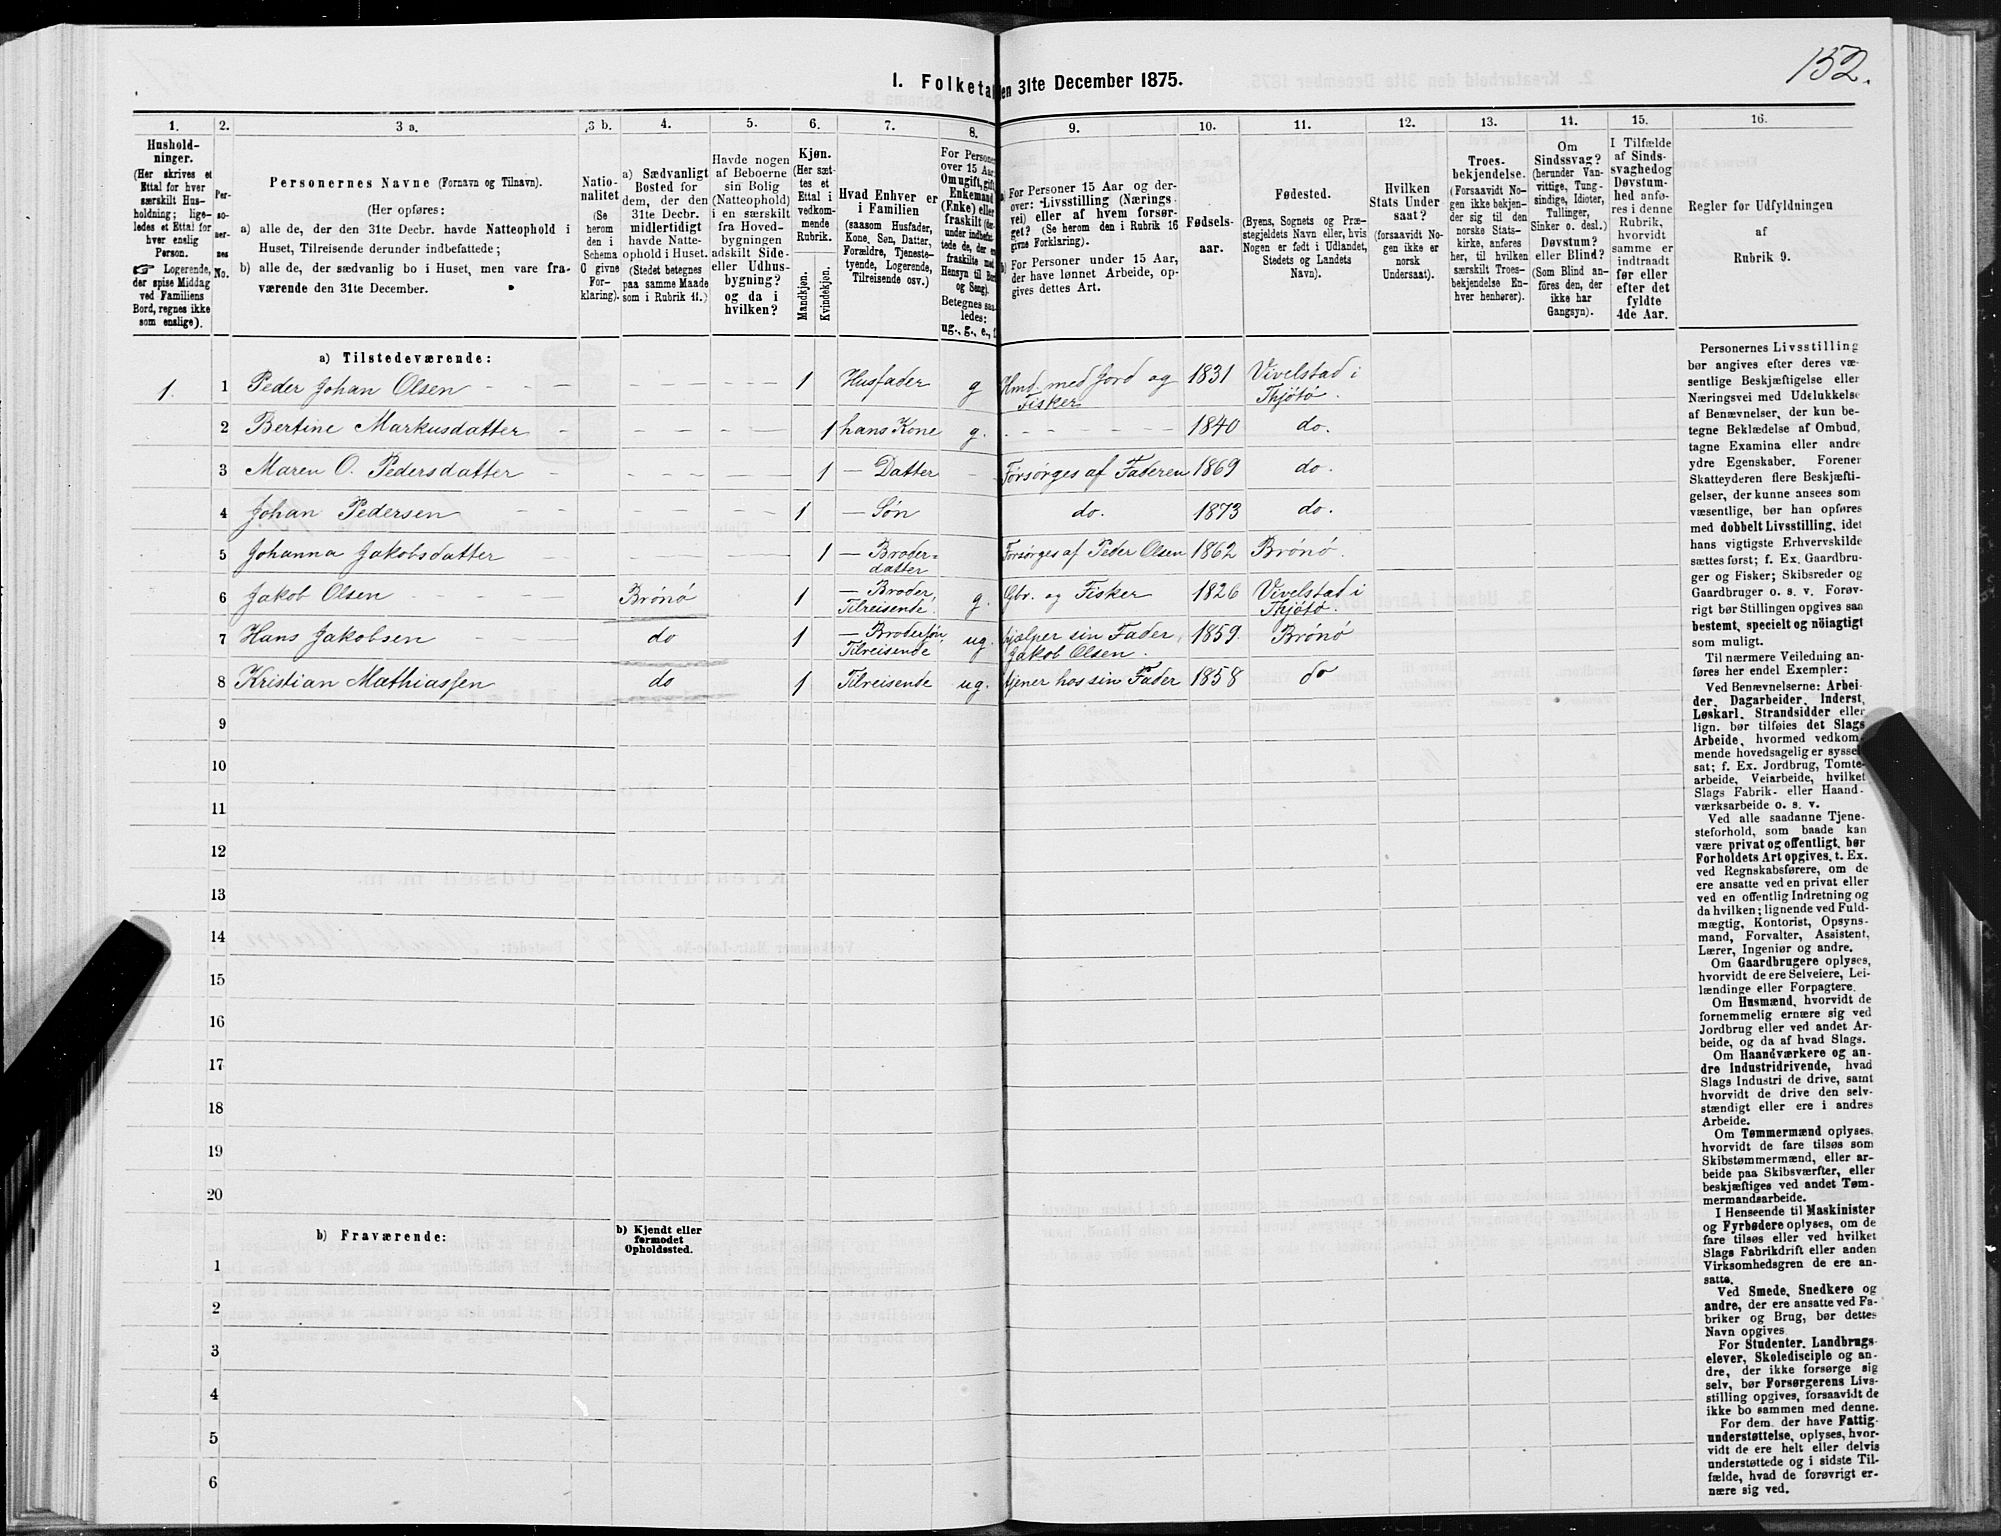 152.
I. Folketa en 31te December 1875.
1. 2. 3 a. 3 b. 4. 5. 6. 7. 8. 9. 10. 11. 12. 13. 14. 15. 16.
Hushold-
ninger.
(Her skrives et
Ettal for hver
særskilt Hus-
holdning; lige-
ledes et Ettal for
hver enslig
Person.
☞ Logerende,
der spise Middag
ved Familiens
Bord, regnes ikke
som enslige).
Per-
so-
ner-
nes
No.
Personernes Navne (Fornavn og Tilnavn).
(Her opføres:
a) alle de, der den 31te Decbr. havde Natteophold i
Huset, Tilreisende derunder indbefattede;
b) alle de, der sædvanlig bo i Huset, men vare fra-
værende den 31te December.
Natio-
nalitet
(Se
herom
den i
Schema
C givne
For-
klaring).
a) Sædvanligt
Bosted for
dem, der den
31te Decbr.
midlertidigt
havde Natte-
ophold i Huset.
(Stedet betegnes
paa samme Maade
som i Rubrik 11.)
Havde nogen
af Beboerne
sin Bolig
(Natteophold)
i en særskilt
fra Hoved-
bygningen
adskilt Side-
eller Udhus-
bygning?
og da i
hvilken?
Kjøn.
(Her sæt-
tes et
Ettal i
vedkom-
mende
Rubrik.
Mandkjøn.
Kvindekjøn.
Hvad Enhver er
i Familien
(saasom Husfader,
Kone, Søn, Datter,
Forældre, Tjeneste-
tyende, Logerende,
Tilreisende osv.)
For Personer
over 15 Aar:
Om ugift, gift,
Enkemand
(Enke) eller
fraskilt (der-
under indbefat-
tede de, der er
fraskilte med
Hensyn til Bord
og Seng).
Betegnes saa-
ledes:
ug., g., e., f.
a) For Personer 15 Aar og der-
over: Livsstilling (Nærings-
vei) eller af hvem forsør-
get? (Se herom den i Rubrik 16
givne Forklaring).
b) For Personer under 15 Aar,
der have lønnet Arbeide, op-
gives dettes Art.
Fødsels-
aar.
Fødested.
(Byens, Sognets og Præ-
stegjeldets Navn eller, hvis
Nogen er født i Udlandet,
Stedets og Landets
Navn).
Hvilken
Stats Under
saat?
(forsaavidt No-
gen ikke er
norsk
Undersaat).
Troes-
bekjendelse.
(Forsaavidt No-
gen ikke bekjen-
der sig til den
norske Stats-
kirke, anføres
her, til hvilken
særskilt Troes-
bekjendelse En-
hver henhører).
Om
Sindssvag?
(herunder Van-
vittige, Tung-
sindige, Idioter,
Tullinger,
Sinker o. desl.)
Døvstum?
eller Blind?
(Som Blind an-
føres den, der
ikke har
Gangsyn).
I Tilfælde
af Sinds-
svaghed og
Døvstum-
hed anfø-
res i denne
Rubrik,
hvorvidt
samme er
indtraadt
før eller
efter det
fyldte
4de Aar.
Regler for Udfyldningen
af
Rubrik 9.
a) Tilstedeværende:
1. 1 Peder Johan Olsen 1 Husfader g Hmd. med Jord og Fisker 1831 Vivelstad i Thjøtø.
2 Bertine Markusdatter 1 hans Kone g. 1840 do.
3 Maren O. Pedersdatter 1 — Datter Forsørges af Faderen 1869 do.
4 Johan Pedersen 1 — Søn do. 1873 do.
5 Johanna Jakobsdatter 1 — Broder= datter Forsørges af Peder Olsen 1862 Brønø.
6 Jakob Olsen Brønø 1 — Broder, Tilreisende. g. Gbr. og Fisker 1826 Vivelstad i Thjøtø.
7 Hans Jakobsen do 1 — Brodersøn, Tilreisende ug. hjælper sin Fader, Jakob Olsen. 1859. Brønø
8 Kristian Mathiassen do 1 Tilreisende ug. tjener hos sin Fader 1858 do
9
10
11
12
13
14
15
16
17
18
19
20
b) Fraværende:
b) Kjendt eller
formodet
Opholdssted.
1
2
3
4
5
6
Personernes Livsstilling
bør angives efter deres væ-
sentlige Beskjæftigelse eller
Næringsvei med Udelukkelse
af Benævnelser, der kun be-
tegne Beklædelse af Ombud,
tagne Examina eller andre
ydre Egenskaber. Forener
Skatteyderen flere Beskjæfti-
gelser, der kunne ansees som
væsentlige, bør han opføres
med dobbelt Livsstilling, idet
hans vigtigste Erhvervskilde
sættes først; f. Ex. Gaardbru-
ger og Fisker; Skibsreder og
Gaardbruger o. s. v. Forøv-
rigt bør Stillingen opgives saa
bestemt, specielt og nöiagtigt
som muligt.
Til nærmere Veiledning an-
føres her endel Exempler:
Ved Benævnelserne: Arbei-
der, Dagarbeider, Inderst,
Løskarl, Strandsidder eller
lign. bør tilføies det Slags
Arbeide, hvormed vedkom-
mende hovedsagelig er syssel-
sat; f. Ex. Jordbrug, Tomte-
arbeide, Veiarbeide, hvilket
Slags Fabrik- eller Haand-
værksarbeide o. s. v.
Ved alle saadanne Tjene-
steforhold, som baade kan
være privat og offentligt, bør
Forholdets Art opgives, t. Ex.
ved Regnskabsførere, om de
ere ansatte ved en privat eller
ved en offentlig Indretning og
da hvilken; lignende ved Fuld-
mægtig, Kontorist, Opsyns-
mand, Forvalter, Assistent,
Lærer, Ingeniør og andre.
Om Gaardbrugere oplyses,
hvorvidt de ere Selveiere, Lei-
lændinge eller Forpagtere.
Om Husmænd, hvorvidt de
fornemmelig ernære sig ved
Jordbrug eller ved andet Ar-
beide, og da af hvad Slags.
Om Haandværkere og an-
dre Industridrivende, hvad
Slags Industri de drive, samt
hvorvidt de drive den selv-
stændigt eller ere i andres
Arbeide.
Om Tømmermænd oplyses,
hvorvidt de fare tilsøs som
Skibstømmermænd, eller ar-
beide paa Skibsværfter, eller
beskjæftiges ved andet Tøm-
mermandsarbeide.
I Henseende til Maskinister
og Fyrbødere oplyses, om de
fare tilsøs eller ved hvilket
Slags Fabrikdrift eller anden
Virksomhedsgren de ere an-
satte.
Ved Smede, Snedkere og
andre, der ere ansatte ved Fa-
briker og Brug, bør dettes
Navn opgives
For Studenter, Landbrugs-
elever, Skoledisciple og an-
dre, der ikke forsørge sig
selv, bør Forsørgerens Livs-
stilling opgives, forsaavidt de
ikke bo sammen med denne.
For dem, der have Fattig-
understøttelse, oplyses, hvor-
vidt de ere helt eller delvis
understøttede og i sidste Til-
fælde, hvad de forøvrigt er-
nære sig ved.